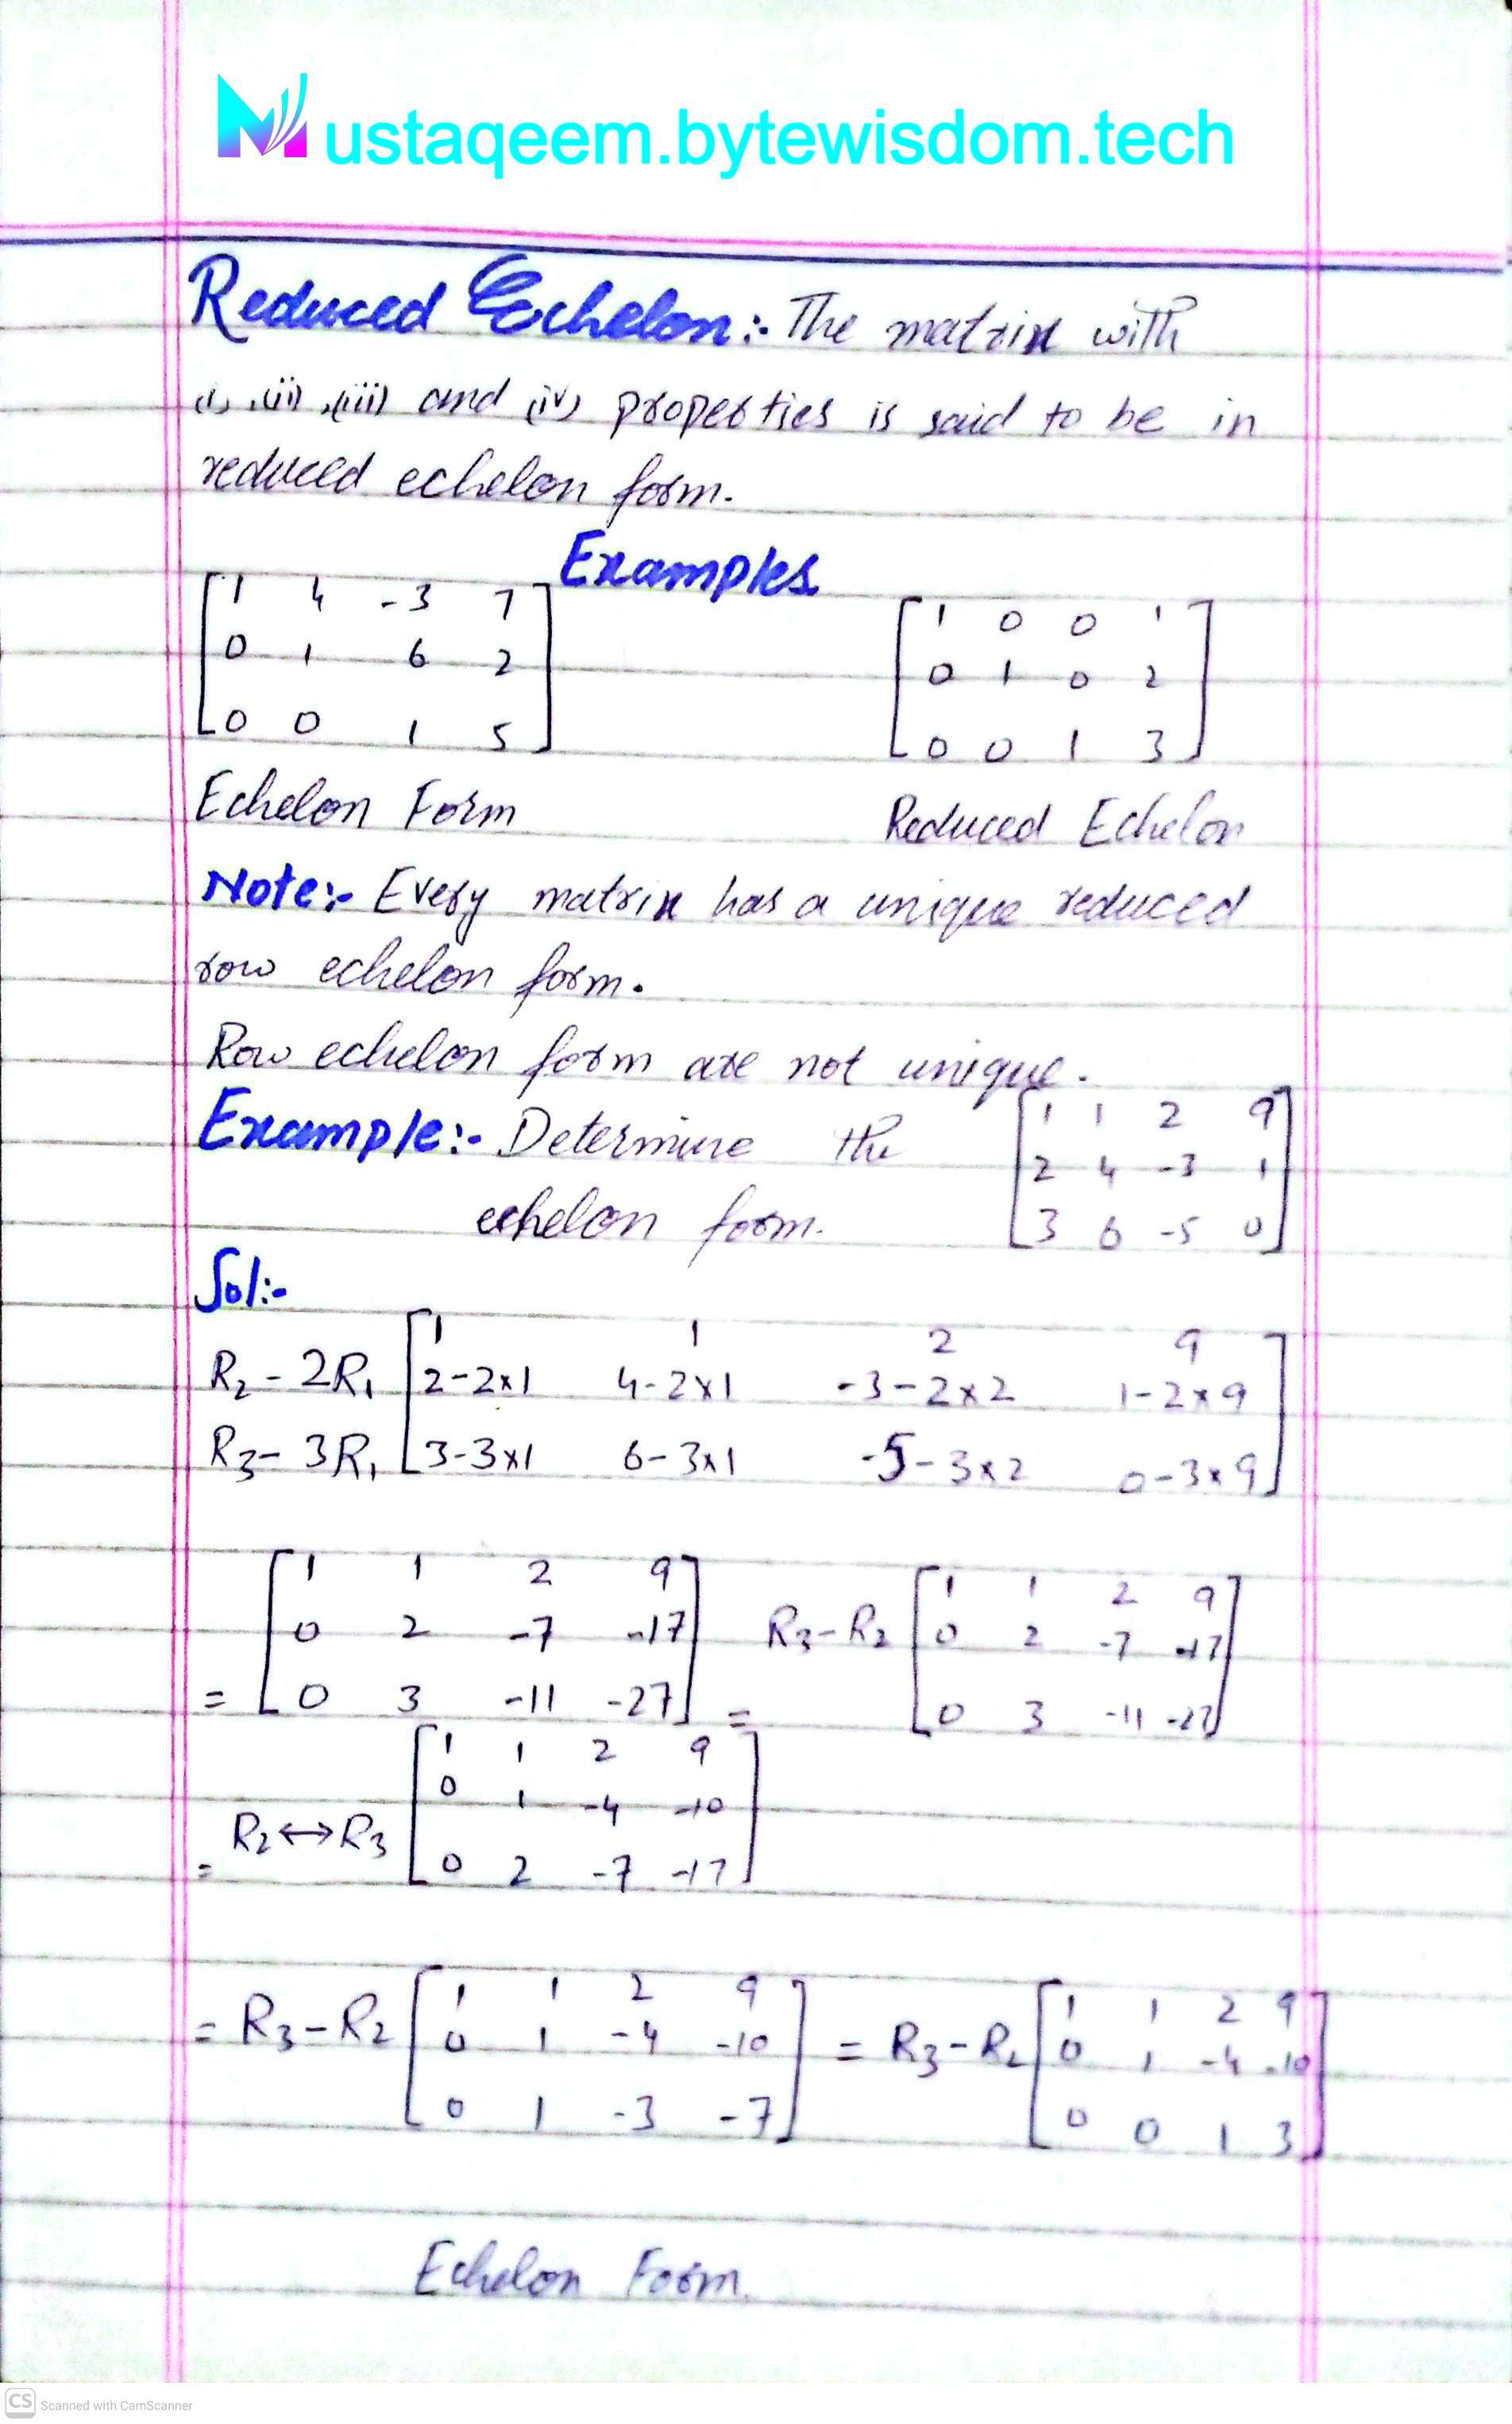 Mustaqeem.bytewisdom.tech
Reduced Echelon:- The matrix with
(i), (ii), (iii) and (iv) properties is said to be in
reduced echelon form.
Examples
[1 4 -3 7
0 1 6 2
0 0 1 5]
[1 0 0 1
0 1 0 2
0 0 1 3]
Echelon Form
Reduced Echelon
Note:- Every matrix has a unique reduced
row echelon form.
Row echelon form are not unique.
Example:- Determine the
echelon form.
[1 1 2 9
2 4 -3 1
3 6 -5 0]
Sol:-
[1 1 2 9
R₂ - 2R₁ 2-2×1 4-2×1 -3-2×2 1-2×9
R₃ - 3R₁ 3-3×1 6-3×1 -5-3×2 0-3×9]
= [1 1 2 9
0 2 -7 -17
0 3 -11 -27]
= R₃-R₂ [1 1 2 9
0 2 -7 -17
0 3 -11 -27]
= R₂↔R₃ [1 1 2 9
0 1 -4 -10
0 2 -7 -17]
= R₃-R₂ [1 1 2 9
0 1 -4 -10
0 1 -3 -7]
= R₃-R₂ [1 1 2 9
0 1 -4 -10
0 0 1 3]
Echelon Form.
CS Scanned with CamScanner